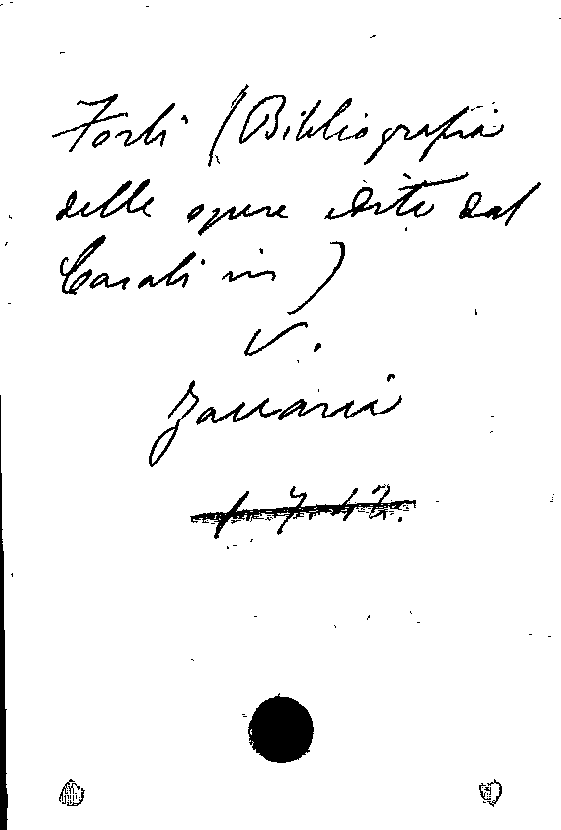 Forlì (Bibliografia
delle opere edite dal
Casali in)
V.
Zaccaria
1. 7. 12.